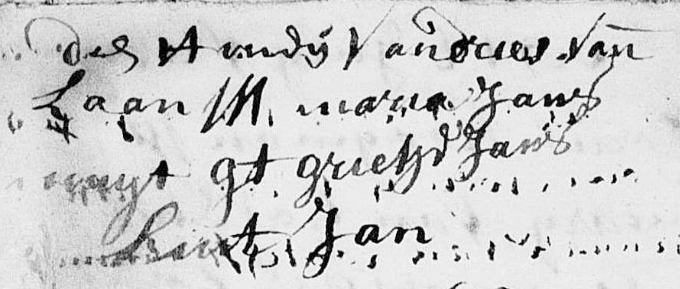 den Vandries van
Laan M. maria Jans
gt grietie Jans
kint Jan